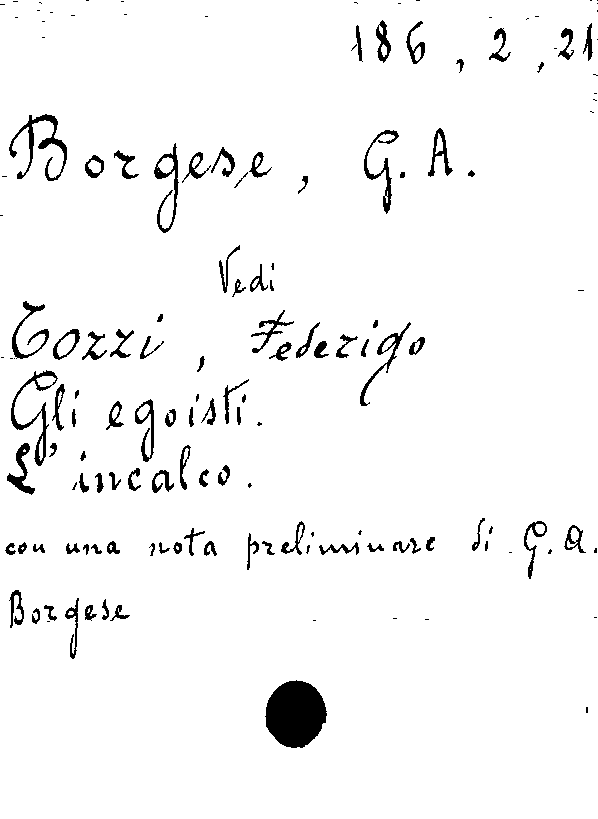 186, 2, 21
Borgese, G. A.
Vedi
Tozzi, Federigo
Gli egoisti.
L'incalco.
con una nota preliminare di G. A.
Borgese